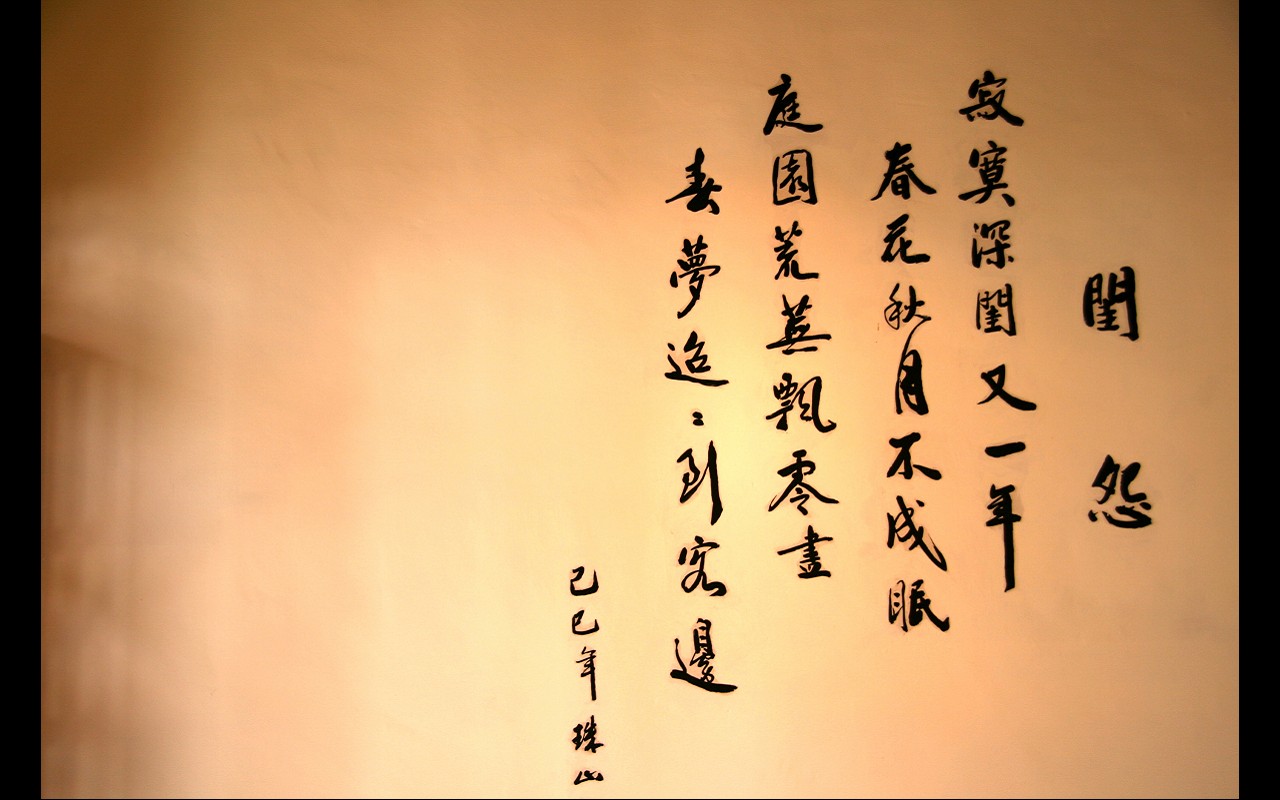 閨怨
寂寞深閨又一年
春花秋月不成眠
庭園荒蕪飄零盡
春夢迢〻到客邊
己巳年珠山